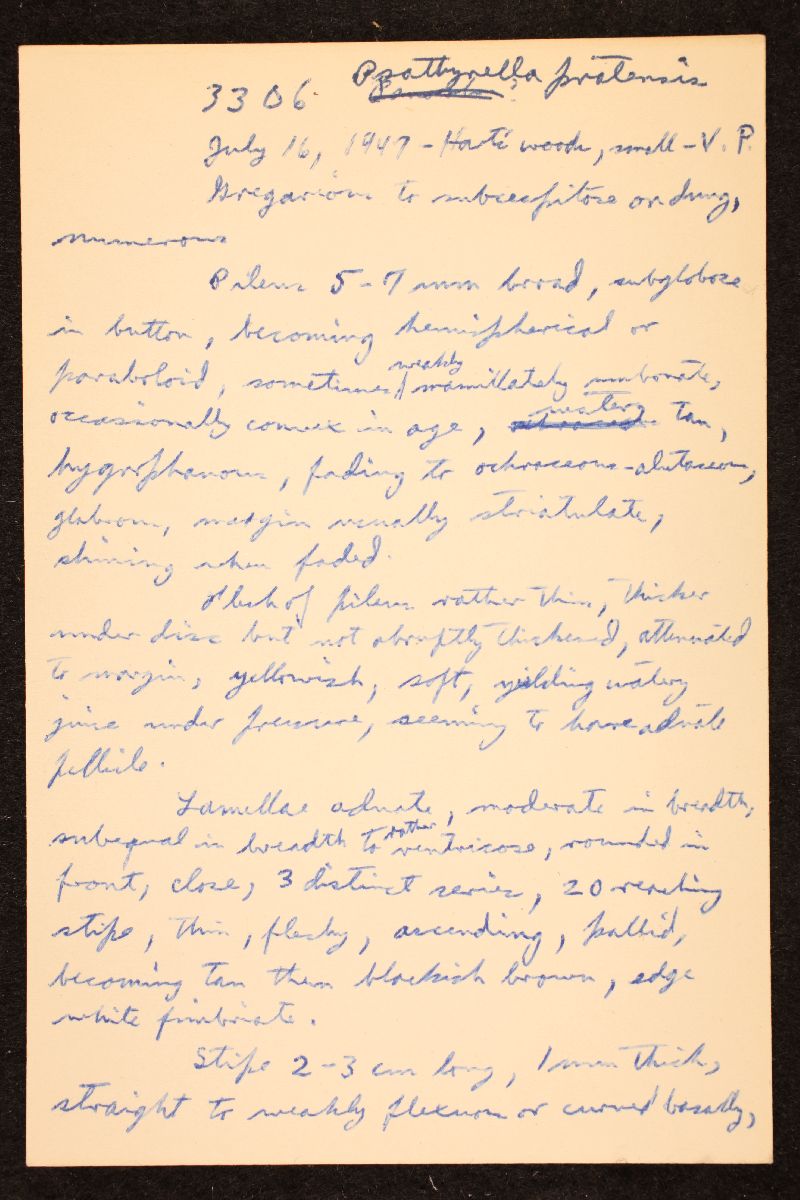 3306 Psathyrella pratensis
July 16, 1947 - woods, small - V. P.
Gregarious to subcespitose on dung,
numerous
Pileus 5-7 mm broad, subglobose
in button, becoming hemispherical or
paraboloid, sometimes weakly mamillately umbonate,
occasionally convex in age, watery tan,
hygrophanous, fading to ochraceous-alutaceous,
glabrous, margin usually striatulate,
shining when faded.
Flesh of pileus rather thin, thicker
under disc but not abruptly thickened, attenuated
to margin, yellowish, soft, yielding watery
juice under pressure, seeming to have adnate
pellicle.
Lamellae adnate, moderate in breadth,
subequal in breadth to rather ventricose, rounded in
front, close, 3 distinct series, 20 reaching
stipe, thin, fleshy, ascending, pallid,
becoming tan then blackish brown, edge
white fimbriate.
Stipe 2-3 cm long, 1 mm thick,
straight to weakly flexuous or curved basally,